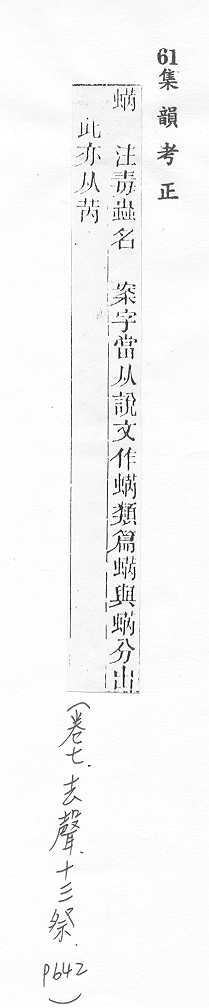 61集韻考正
蜹 注毒蟲名 案字當从說文作蜹類篇蜹與蜹分出
此亦从芮
(卷七.去聲.十三祭.P642)